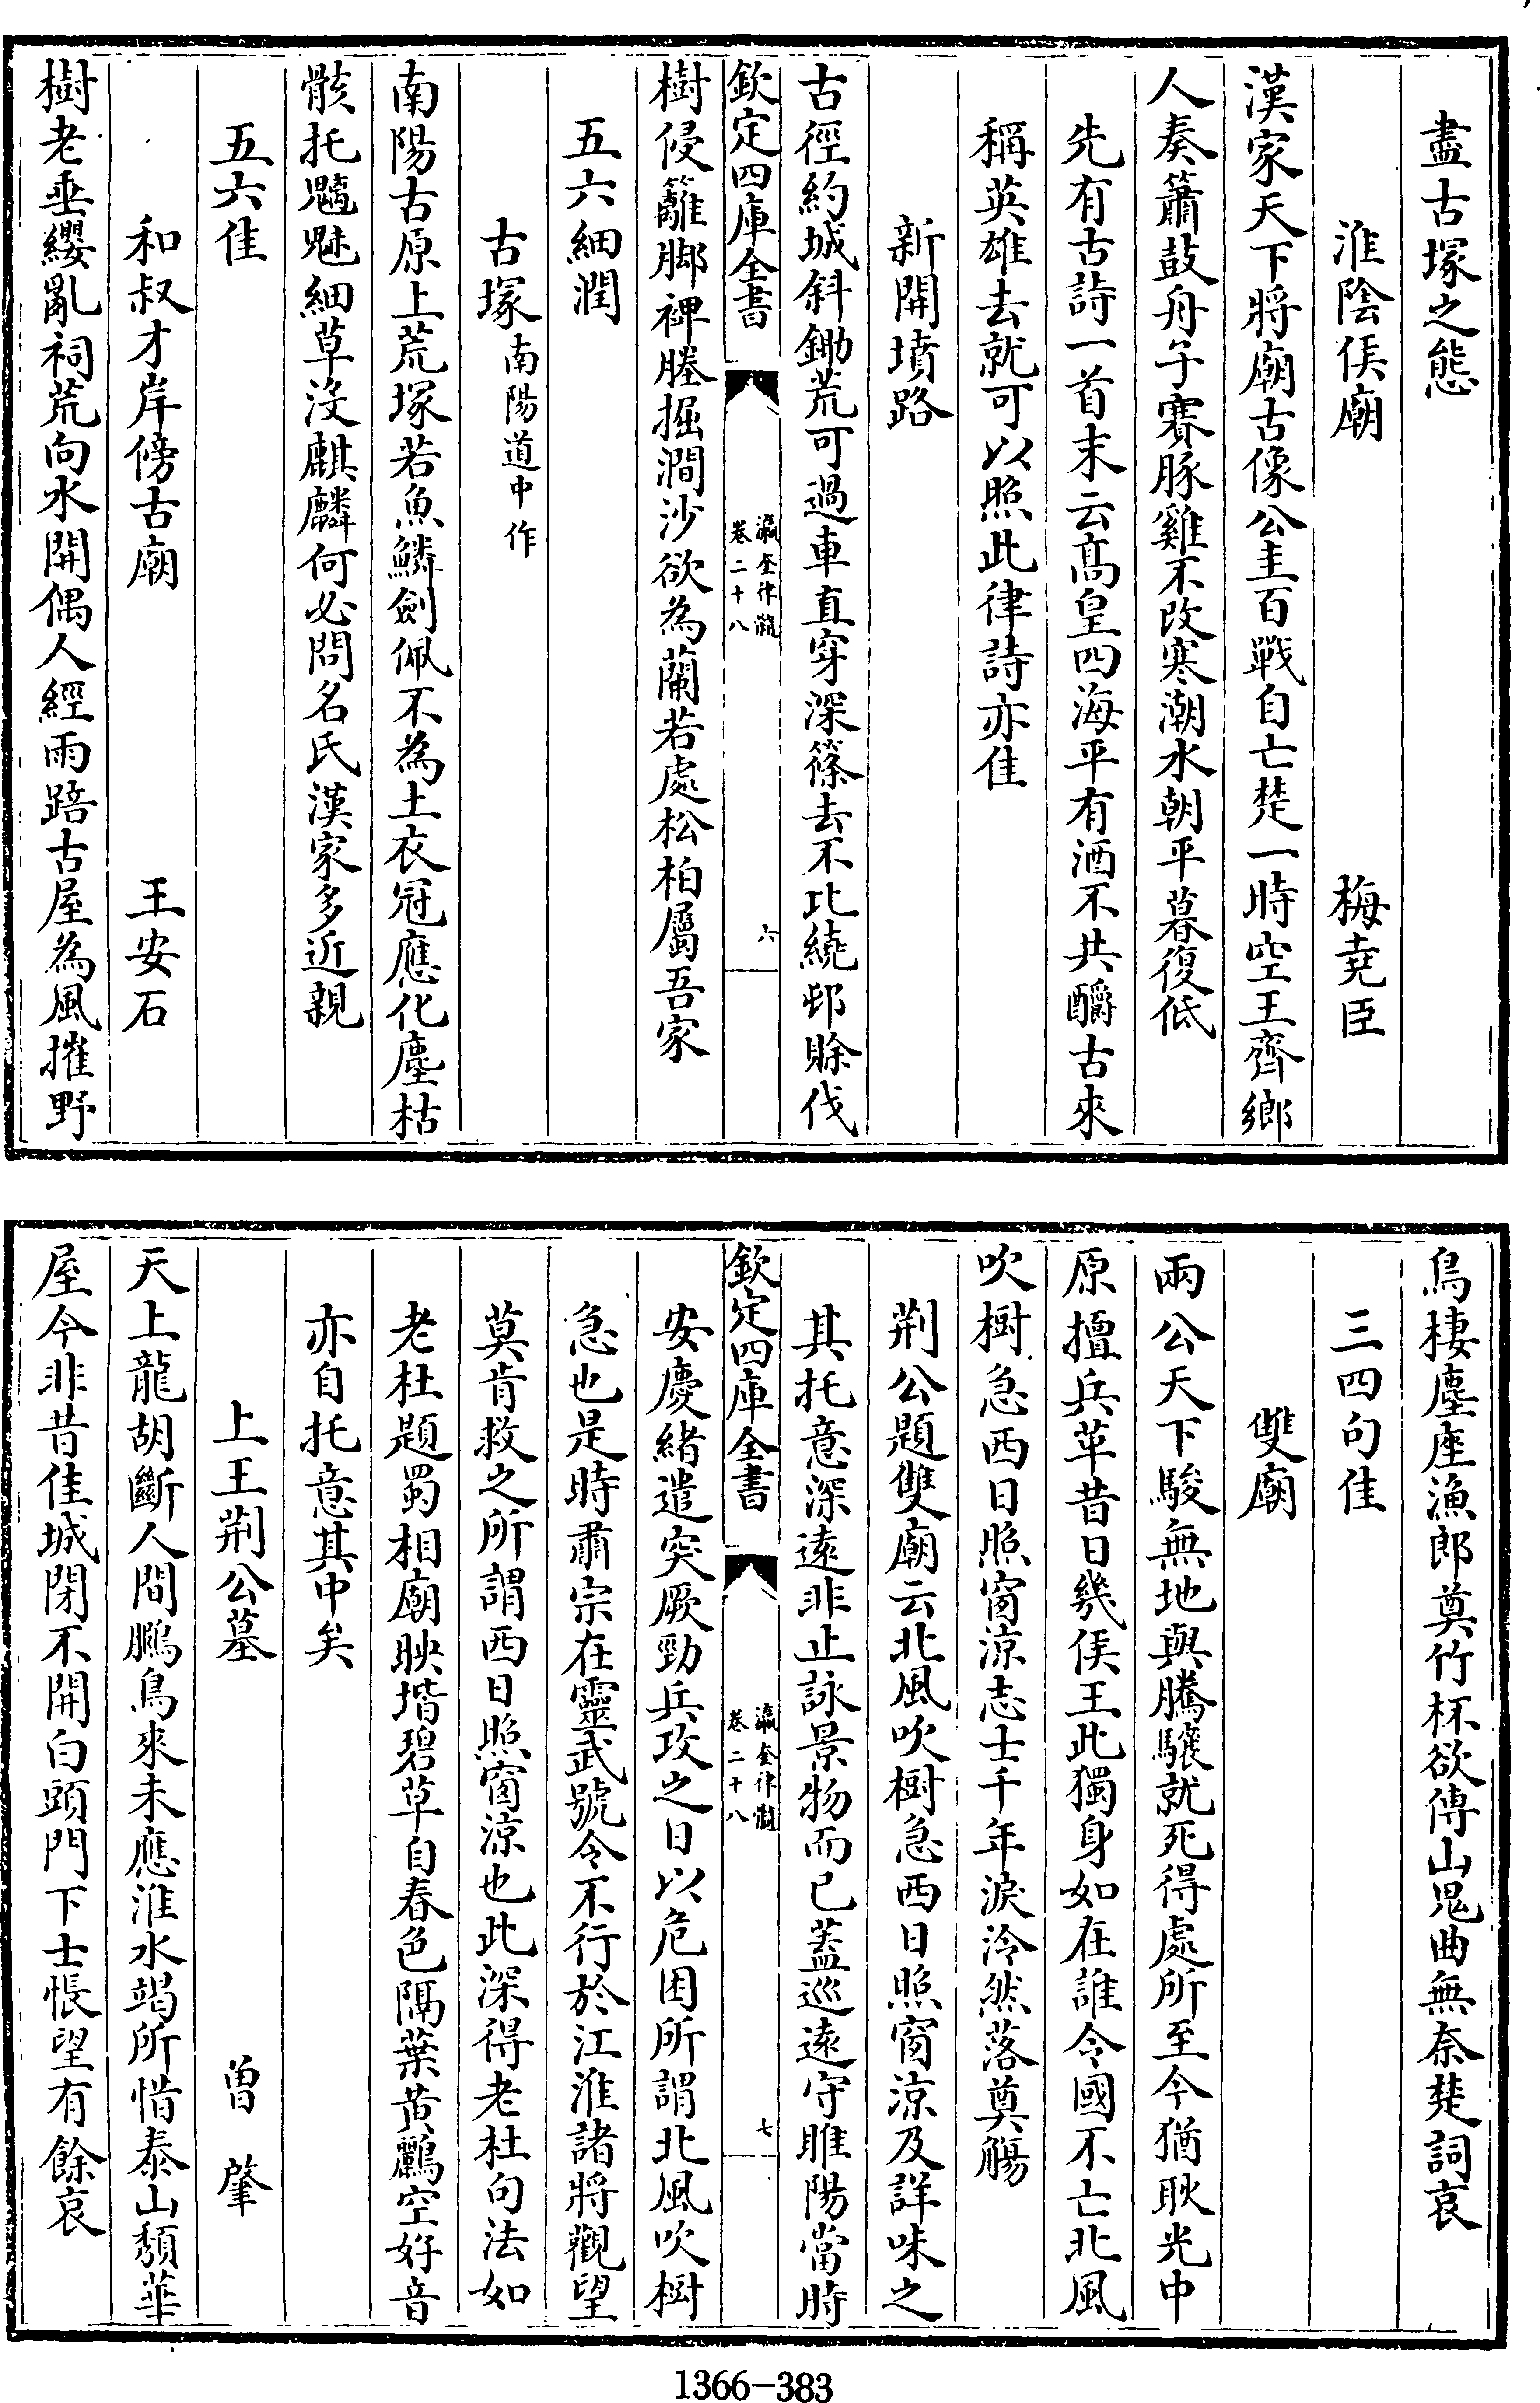 盡古塚之態
淮陰侯廟　梅堯臣
漢家天下將廟古像公圭百戰自亡楚一時空王齊鄉
人奏簫鼓舟子賽豚雞不改寒潮水朝平暮復低
先有古詩一首末云髙皇四海平有酒不共釂古來
稱英雄去就可以照此律詩亦佳
新開墳路
古徑約城斜鋤荒可過車直穿深篠去不比繞邨賒伐
欽定四庫全書　瀛奎律髓卷二十八　六
樹侵籬脚裨塍掘澗沙欲為蘭若處松柏屬吾家
五六細潤
古塚南陽道中作
南陽古原上荒塚若魚鱗劍佩不為土衣冠應化塵枯
骸托魑魅細草沒麒麟何必問名氏漢家多近親
五六佳
和叔才岸傍古廟　王安石
樹老垂纓亂祠荒向水開偶人經雨踣古屋為風摧野
鳥棲塵座漁郎奠竹杯欲傳山鬼曲無奈楚詞哀
三四句佳
雙廟
兩公天下駿無地與騰驤就死得處所至今猶耿光中
原擅兵革昔日幾侯王此獨身如在誰令國不亡北風
吹樹急西日照窗涼志士千年淚泠然落奠觴
荆公題雙廟云北風吹樹急西日照窗涼及詳味之
其托意深遠非止詠景物而已蓋巡遠守睢陽當時
欽定四庫全書　瀛奎律髓卷二十八　七
安慶緒遣突厥勁兵攻之日以危困所謂北風吹樹
急也是時肅宗在靈武號令不行於江淮諸將觀望
莫肯救之所謂西日照窗涼也此深得老杜句法如
老杜題蜀相廟映堦碧草自春色隔葉黄鸝空好音
亦自托意其中矣
上王荆公墓　曽肇
天上龍胡斷人間鵩鳥來未應淮水竭所惜泰山頽華
屋今非昔佳城閉不開白頭門下士悵望有餘哀
1366-383